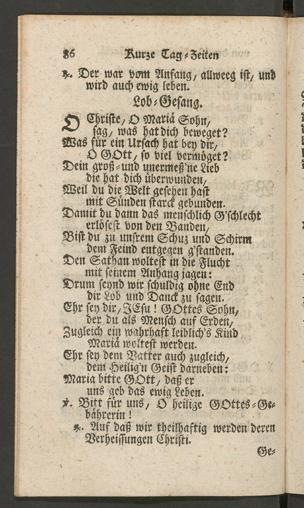 86 Kurze Tag-Zeiten
℟. Der war vom Anfang, allweeg ist, und
wird auch ewig leben.
Lob-Gesang.
O Christe, O Mariä Sohn,
sag, was hat dich beweget?
Was für ein Ursach hat bey dir,
O GOtt, so viel vermöget?
Dein groß- und unermeß'ne Lieb
die hat dich überwunden,
Weil du die Welt gesehen hast
mit Sünden starck gebunden.
Damit du dann das menschlich G'schlecht
erlösest von den Banden,
Bist du zu unsrem Schuz und Schirm
dem Feind entgegen g'standen.
Den Sathan woltest in die Flucht
mit seinem Anhang jagen:
Drum seynd wir schuldig ohne End
dir Lob und Danck zu sagen.
Ehr sey dir, JEsu! GOttes Sohn,
der du als Mensch auf Erden,
Zugleich ein wahrhaft leiblich's Kind
Mariä woltest werden.
Ehr sey dem Vatter auch zugleich,
dem Heilig'n Geist darneben:
Maria bitte GOtt, daß er
uns geb das ewig Leben.
℣. Bitt für uns, O heilige GOttes-Ge-
bährerin!
℟. Auf daß wir theilhaftig werden deren
Verheissungen Christi.
Ge-